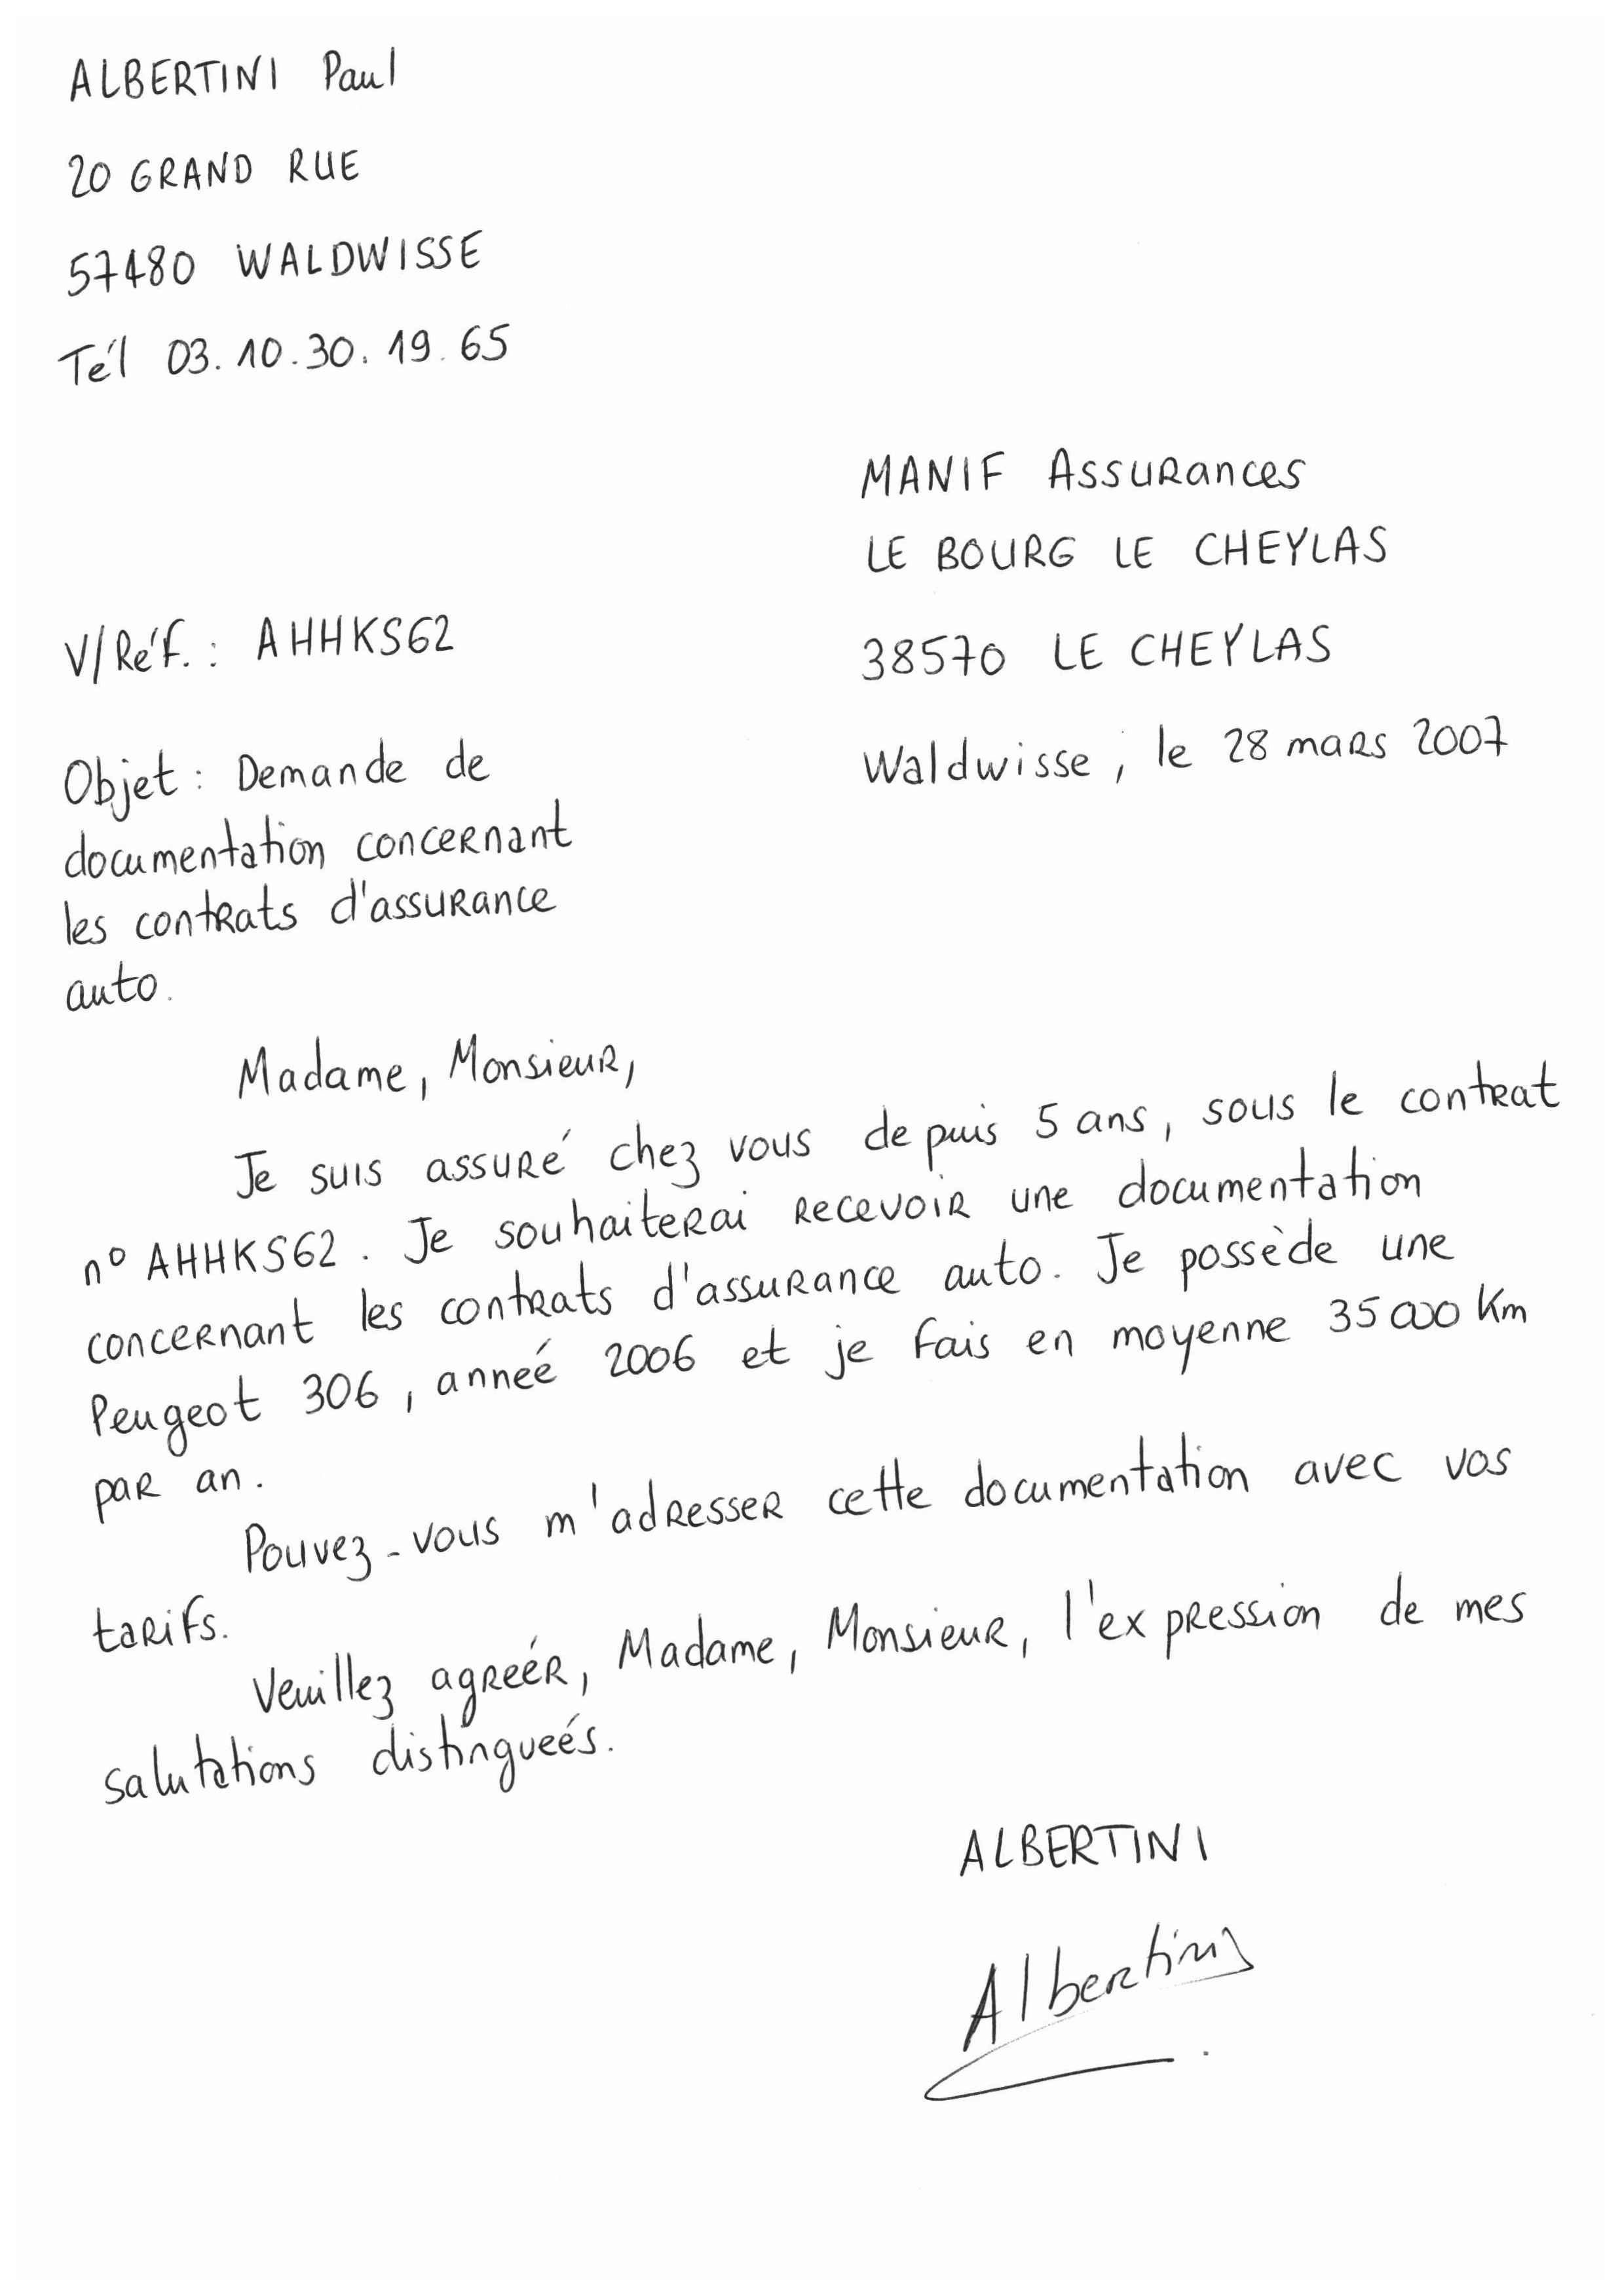 ALBERTINI Paul
20 GRAND RUE
57480 WALDWISSE
Tél 03.10.30.19.65
MANIF Assurances
LE BOURG LE CHEYLAS
38570 LE CHEYLAS
V/Réf. : AHHKS62
Waldwisse, le 28 mars 2007
Objet : Demande de
documentation concernant
les contrats d'assurance
auto.
Madame, Monsieur,
Je suis assuré chez vous depuis 5 ans, sous le contrat
n° AHHKS62. Je souhaiterai recevoir une documentation
concernant les contrats d'assurance auto. Je possède une
Peugeot 306, année 2006 et je fais en moyenne 35 000 Km
par an.
Pouvez-vous m'adresser cette documentation avec vos
tarifs.
Veuillez agréér, Madame, Monsieur, l'expression de mes
salutations distinguées.
ALBERTINI
Albertini